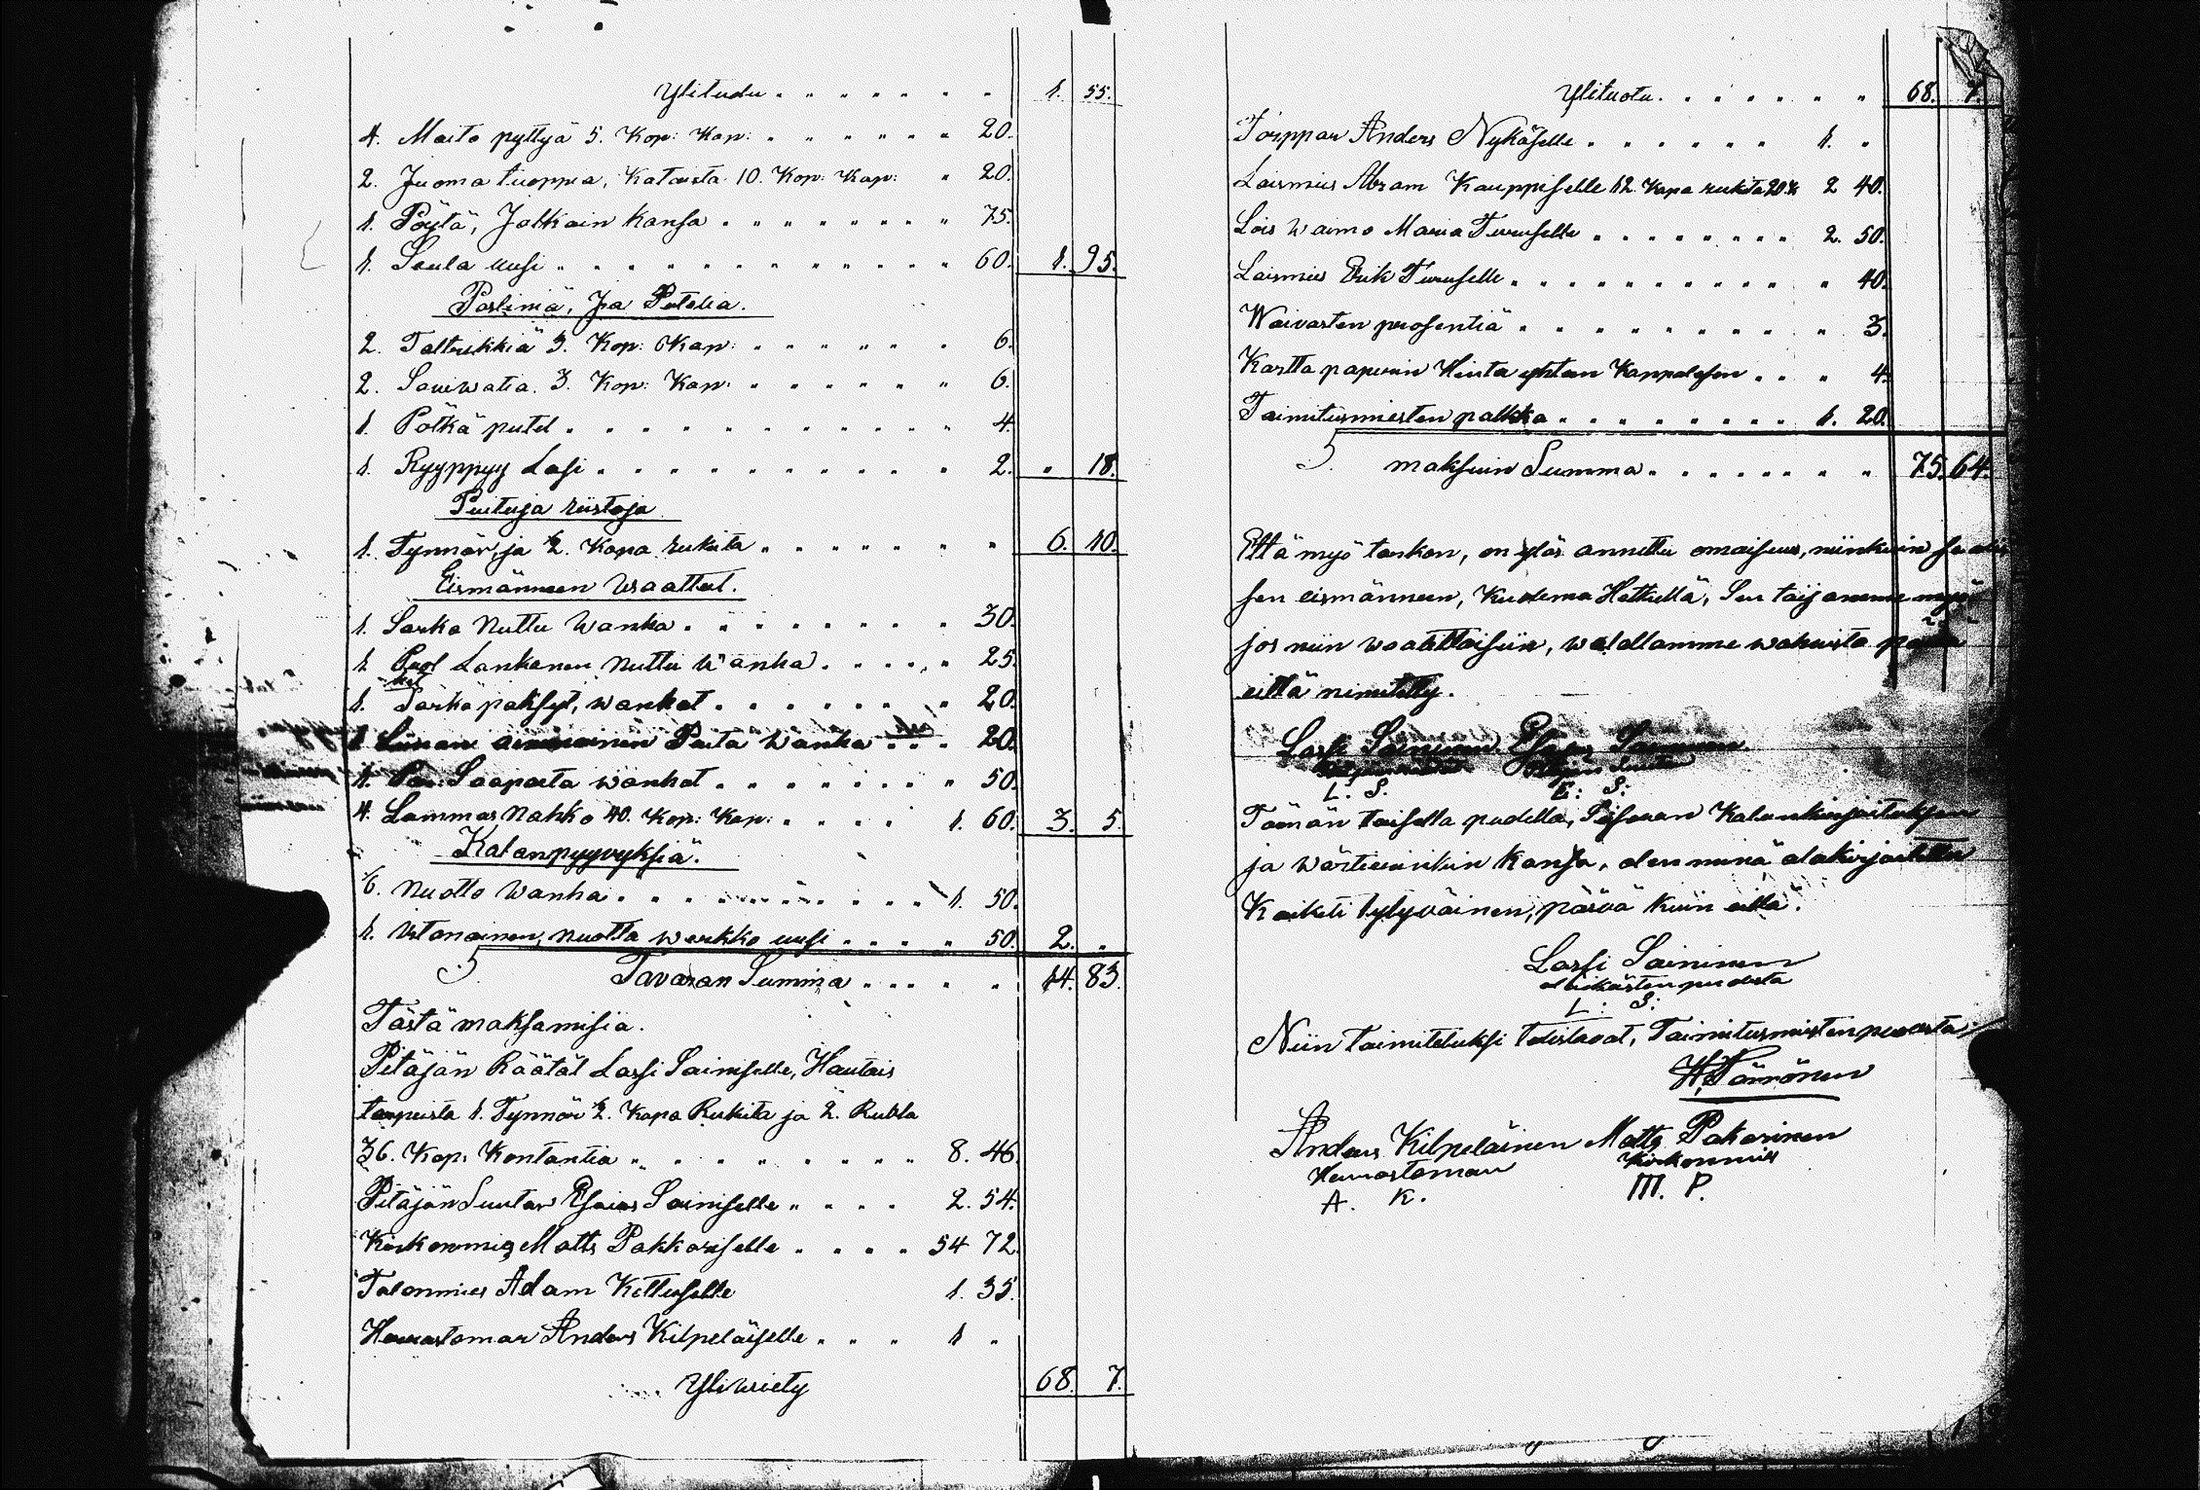 Ylituodu 1. 55.
4. Maito pyttyä 5. Kop: Kap: 20.
2. Juoma tuoppia, Kataista 10. Kop: Kap: 20.
1. Pöytä, Jalkain kansa 75.
1. Saula uusi 60. 1. 95.
Poslinia, Ja Putelia.
2. Taltrikkiä 3. Kop: Kap: 6.
2. Saviwatia. 3. Kop: Kap: 6.
1. Pötkä putel 4.
1. Ryyppyy Lasi 2. " 18.
Puituja riistoja
1. Tynnär, ja 1/2. Kapa rukiita 6. 10.
Eismänneen Waattet.
1. Sarka Nuttu Wanha 30.
1. Puol Lankanen nuttu Wanha 25.
1. Sarka paksyt, wanhat 20.
1. Liinan Paita Wanha 20.
1. Par: Saapasta wanhat 50.
4. Lammas nahko 40. Kop: Kap: 1. 60. 3. 5.
Kalanpyyvyksiä.
1/6. Nuotto Wanha 1. 50.
1. nuotta werkko uusi 50. 2. "
Tavaran Summa 14. 83.
Tästä maksamisia.
Pitäjän Räätäl Lassi Sainiselle, Hautais
tarpeista 1. Tynnär 1/2. Kapa Rukita ja 2. Rubla
36. Kop: Kontantia 8. 46.
Pitäjän Suutar Esaias Sainiselle 2. 54.
Kirkonmies Matts Pakkariselle 54 72.
Talonmies Adam Kettuselle 1. 35.
Anders Kilpeläiselle 1 "
Yliwiety 68. 7.
Ylituotu 68. 7.
Torppar Anders Nykäselle 1. "
Loismies Abram Kauppiselle 12. Kapa rukita 20 K 2 40.
Lois Waimo Maria Turuselle 2. 50.
Loismies Erik Turuselle " 40.
Waivasten prosentiä " 3.
Kartta paperin Hinta yhten Kappalesen " 4.
Taimitusmiesten palkka 1. 20.
maksuin Summa 75. 64.
Että myö tarkon, on ylös annettu omaisuus, niinkuin se
sen eismänneen, Kuolema Hetkellä, Sen
jos niin waadittaisiin, walallamme wahwista
eillä nimitetty.
Lassi Saininen Esaias Saininen
L: S. E: S:
Tämän taisella puolella, Kalunkirjoituksen
ja wärteeraukin kansa, olen minä alakirjoitettu
Kaiketi tytyväinen, päivä kuin eillä.
Lassi Saininen
alaikästen puolesta
L: S:
Niin Taimiteluksi todistavat, Taimitusmisten puolesta
Anders Kilpeläinen Matts Pakarinen
Kirkonmies
A. K. M. P.